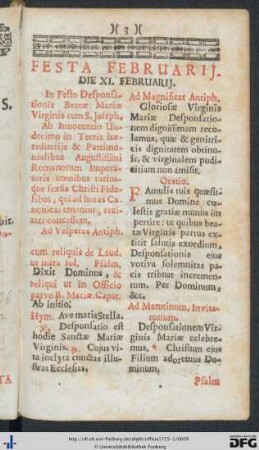 )( 3 )(
FESTA FEBRUARIJ.
DIE XI. FEBRUARIJ.
In Festo Desponsa-
tionis Beatæ Mariæ
Virginis cum S. Joseph,
Ab Innocentio Un-
decimo in Terris hæ-
reditariis & Patrimo-
nialibus Augustissimi
Romanorum Impera-
toris omnibus utrius-
que sexûs Christi Fide-
libus, qui ad horas Ca-
nonicas tenentur, re-
citari concessum.
Ad Vesperas Antiph.
cum reliquis de Laud.
ut infra fol. Psalm.
Dixit Dominus, &
reliqui ut in Officio
parvo B. Mariæ. Capit.
Ab initio.
Hym. Ave maris Stella.
℣. Desponsatio est
hodie Sanctæ Mariæ
Virginis. ℟. Cujus vi-
ta inclyta cunctas illu-
strat Ecclesias.
Ad Magnificat Antiph.
Gloriosæ Virginis
Mariæ Desponsatio-
nem dignissimam reco-
lamus, quæ & genitri-
cis dignitatem obtinu-
it, & virginalem pudi-
citiam non amisit.
Oratio.
FAmulis tuis quæsu-
mus Domine cæ-
lestis gratiæ munus im-
pertire: ut quibus bea-
tæ Virginis partus ex-
titit salutis exordium,
Desponsationis ejus
votiva solemnitas pa-
cis tribuat incremen-
tum. Per Dominum,
&c.
Ad Matutinum, Invita-
torium.
Desponsationem Vir-
ginis Mariæ celebre-
mus, * Christum ejus
Filium adoremus Do-
minum.
Psalm
S.
bit.
TA
http://dl.ub.uni-freiburg.de/diglit/officia1725-1/0009
© Universitätsbibliothek Freiburg
DFG